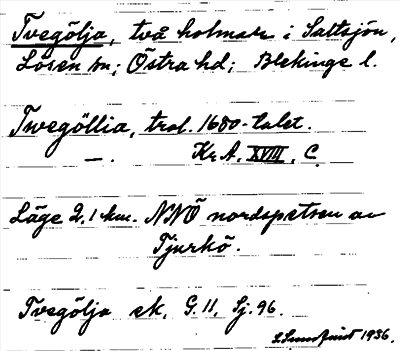 Tvegölja, två holmar i Saltsjön,
Lösen sn; Östra hd; Blekinge l.
Twegöllia, trol. 1680-talet.
—. Kr.A. XVIII, C
Läge 2.1 km. NNÖ nordspetsen av
Tjurkö.
Tvegölja ek. G. 11, Sj. 96.
1936.